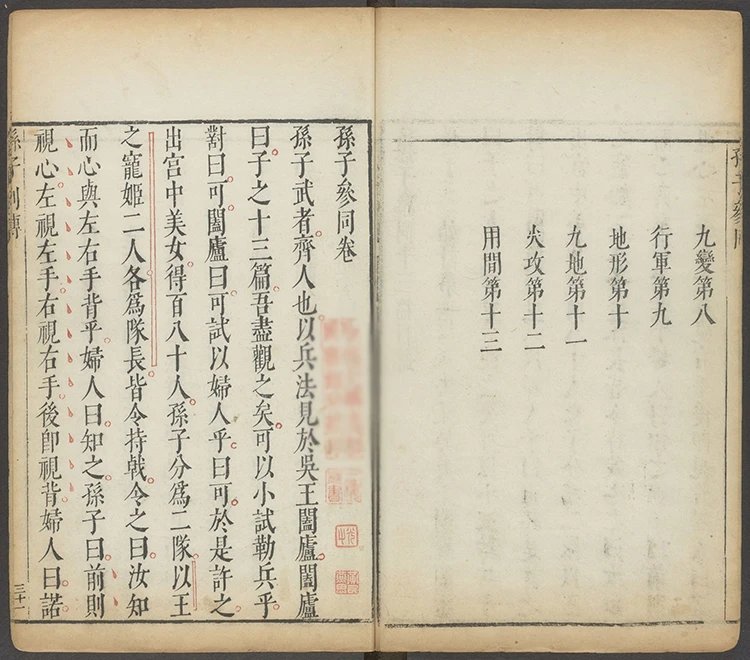 孫子參同
九變第八
行軍第九
地形第十
九地第十一
火攻第十二
用間第十三
孫子參同卷
孫子武者齊人也以兵法見於吳王闔廬闔廬
曰子之十三篇吾盡觀之矣可以小試勒兵乎
對曰可闔廬曰可試以婦人乎曰可於是許之
出宮中美女得百八十人孫子分爲二隊以王
之寵姬二人各爲隊長皆令持戟令之曰汝知
而心與左右手背乎婦人曰知之孫子曰前則
視心左視左手右視右手後卽視背婦人曰諾
孫子列傳
三十一